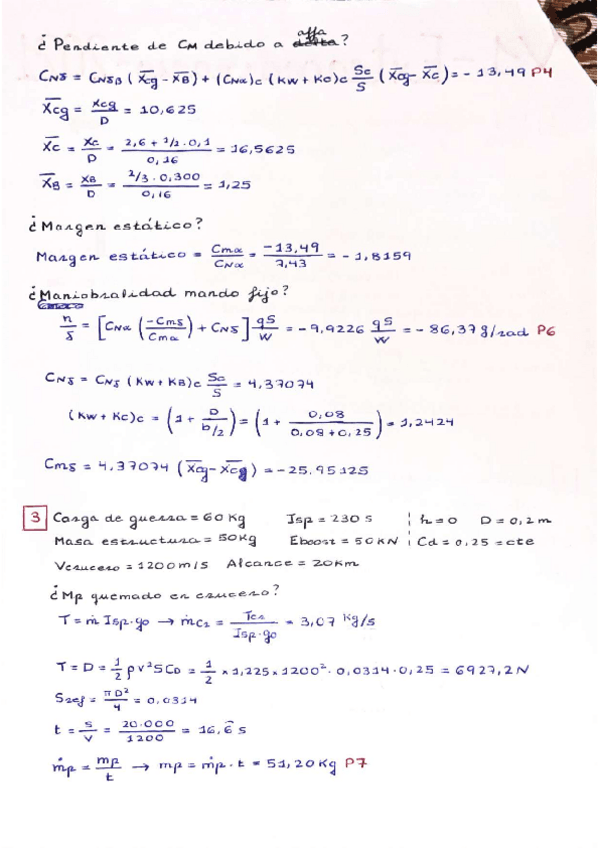 ¿Pendiente de CM debido a alfa?
CNδ = CNδB (X̄cg - X̄B) + (CNα)c (KW + KC)c Sc/S (X̄cg - X̄c) = - 13,49 P4
X̄cg = Xcg/D = 10,625
X̄c = Xc/D = (2,6 + 1/2 · 0,1)/0,16 = 16,5625
X̄B = XB/D = (2/3 · 0,300)/0,16 = 1,25
¿Margen estático?
Margen estático = Cmα/CNα = -13,49/7,43 = - 1,8159
¿Maniobralidad mando fijo?
n/δ = [CNα (-Cmδ/Cmα) + CNδ] qS/W = - 9,9226 qS/W = - 86,37 g/rad P6
CNδ = CNδ (KW + KB)c Sc/S = 4,37074
(KW + KC)c = (1 + D/(b/2)) = (1 + 0,08/(0,08 + 0,25)) = 1,2424
Cmδ = 4,37074 (X̄cg - X̄cg) = - 25,95125
3 Carga de guerra = 60 Kg Isp = 230 s h = 0 D = 0,2 m
Masa estructura = 50 Kg Eboost = 50 KN Cd = 0,25 = cte
Vcrucero = 1200 m/s Alcance = 20 Km
¿Mp quemado en crucero?
T = ṁ Isp·g0 → ṁc2 = Tc2/(Isp·g0) = 3,07 kg/s
T = D = 1/2 ρv²SCD = 1/2 × 1,225 × 1200² · 0,0314 · 0,25 = 6927,2 N
Sref = πD²/4 = 0,0314
t = s/v = 20.000/1200 = 16,6̄ s
ṁp = mp/t → mp = ṁp · t = 51,20 Kg P7